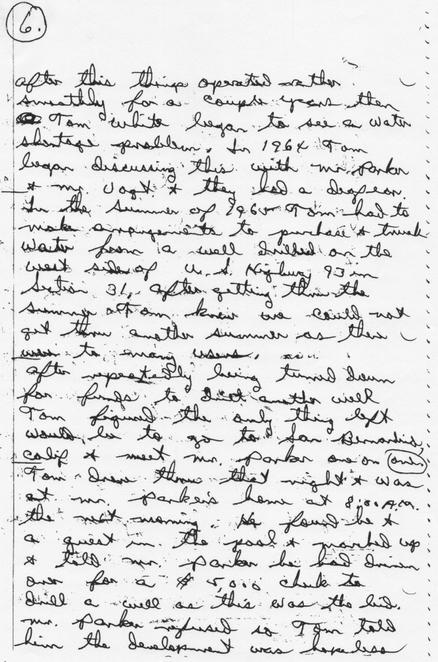 6.
after this things operated rather
smoothly for a couple years then
Tom White began to see a water
shortage problem. In 1964 Tom
began discussing this with Mr. Parker
& Mr. Vogt & they had a deaf ear
In the summer of 1965 Tom had to
make arrangements to purchase & truck
water from a well drilled on the
west side of U.S. Highway 93 in
Section 31. After getting thru the
summer Tom knew we could not
get thru another summer as there
were to many users.
After repeatedly being turned down
for funds to drill another well
Tom figured the only thing left
would be to go to San Bernardino,
Calif & meet Mr. Parker one on one.
Tom drove there that night & was
at Mr. Parker's home at 8:00 A.M.
the next morning. He found he &
a guest in the pool & marched up
& told Mr. Parker he had driven
over for a $ check to
drill a well as this was the bid.
Mr. Parker refused so Tom told
him the development was hopeless